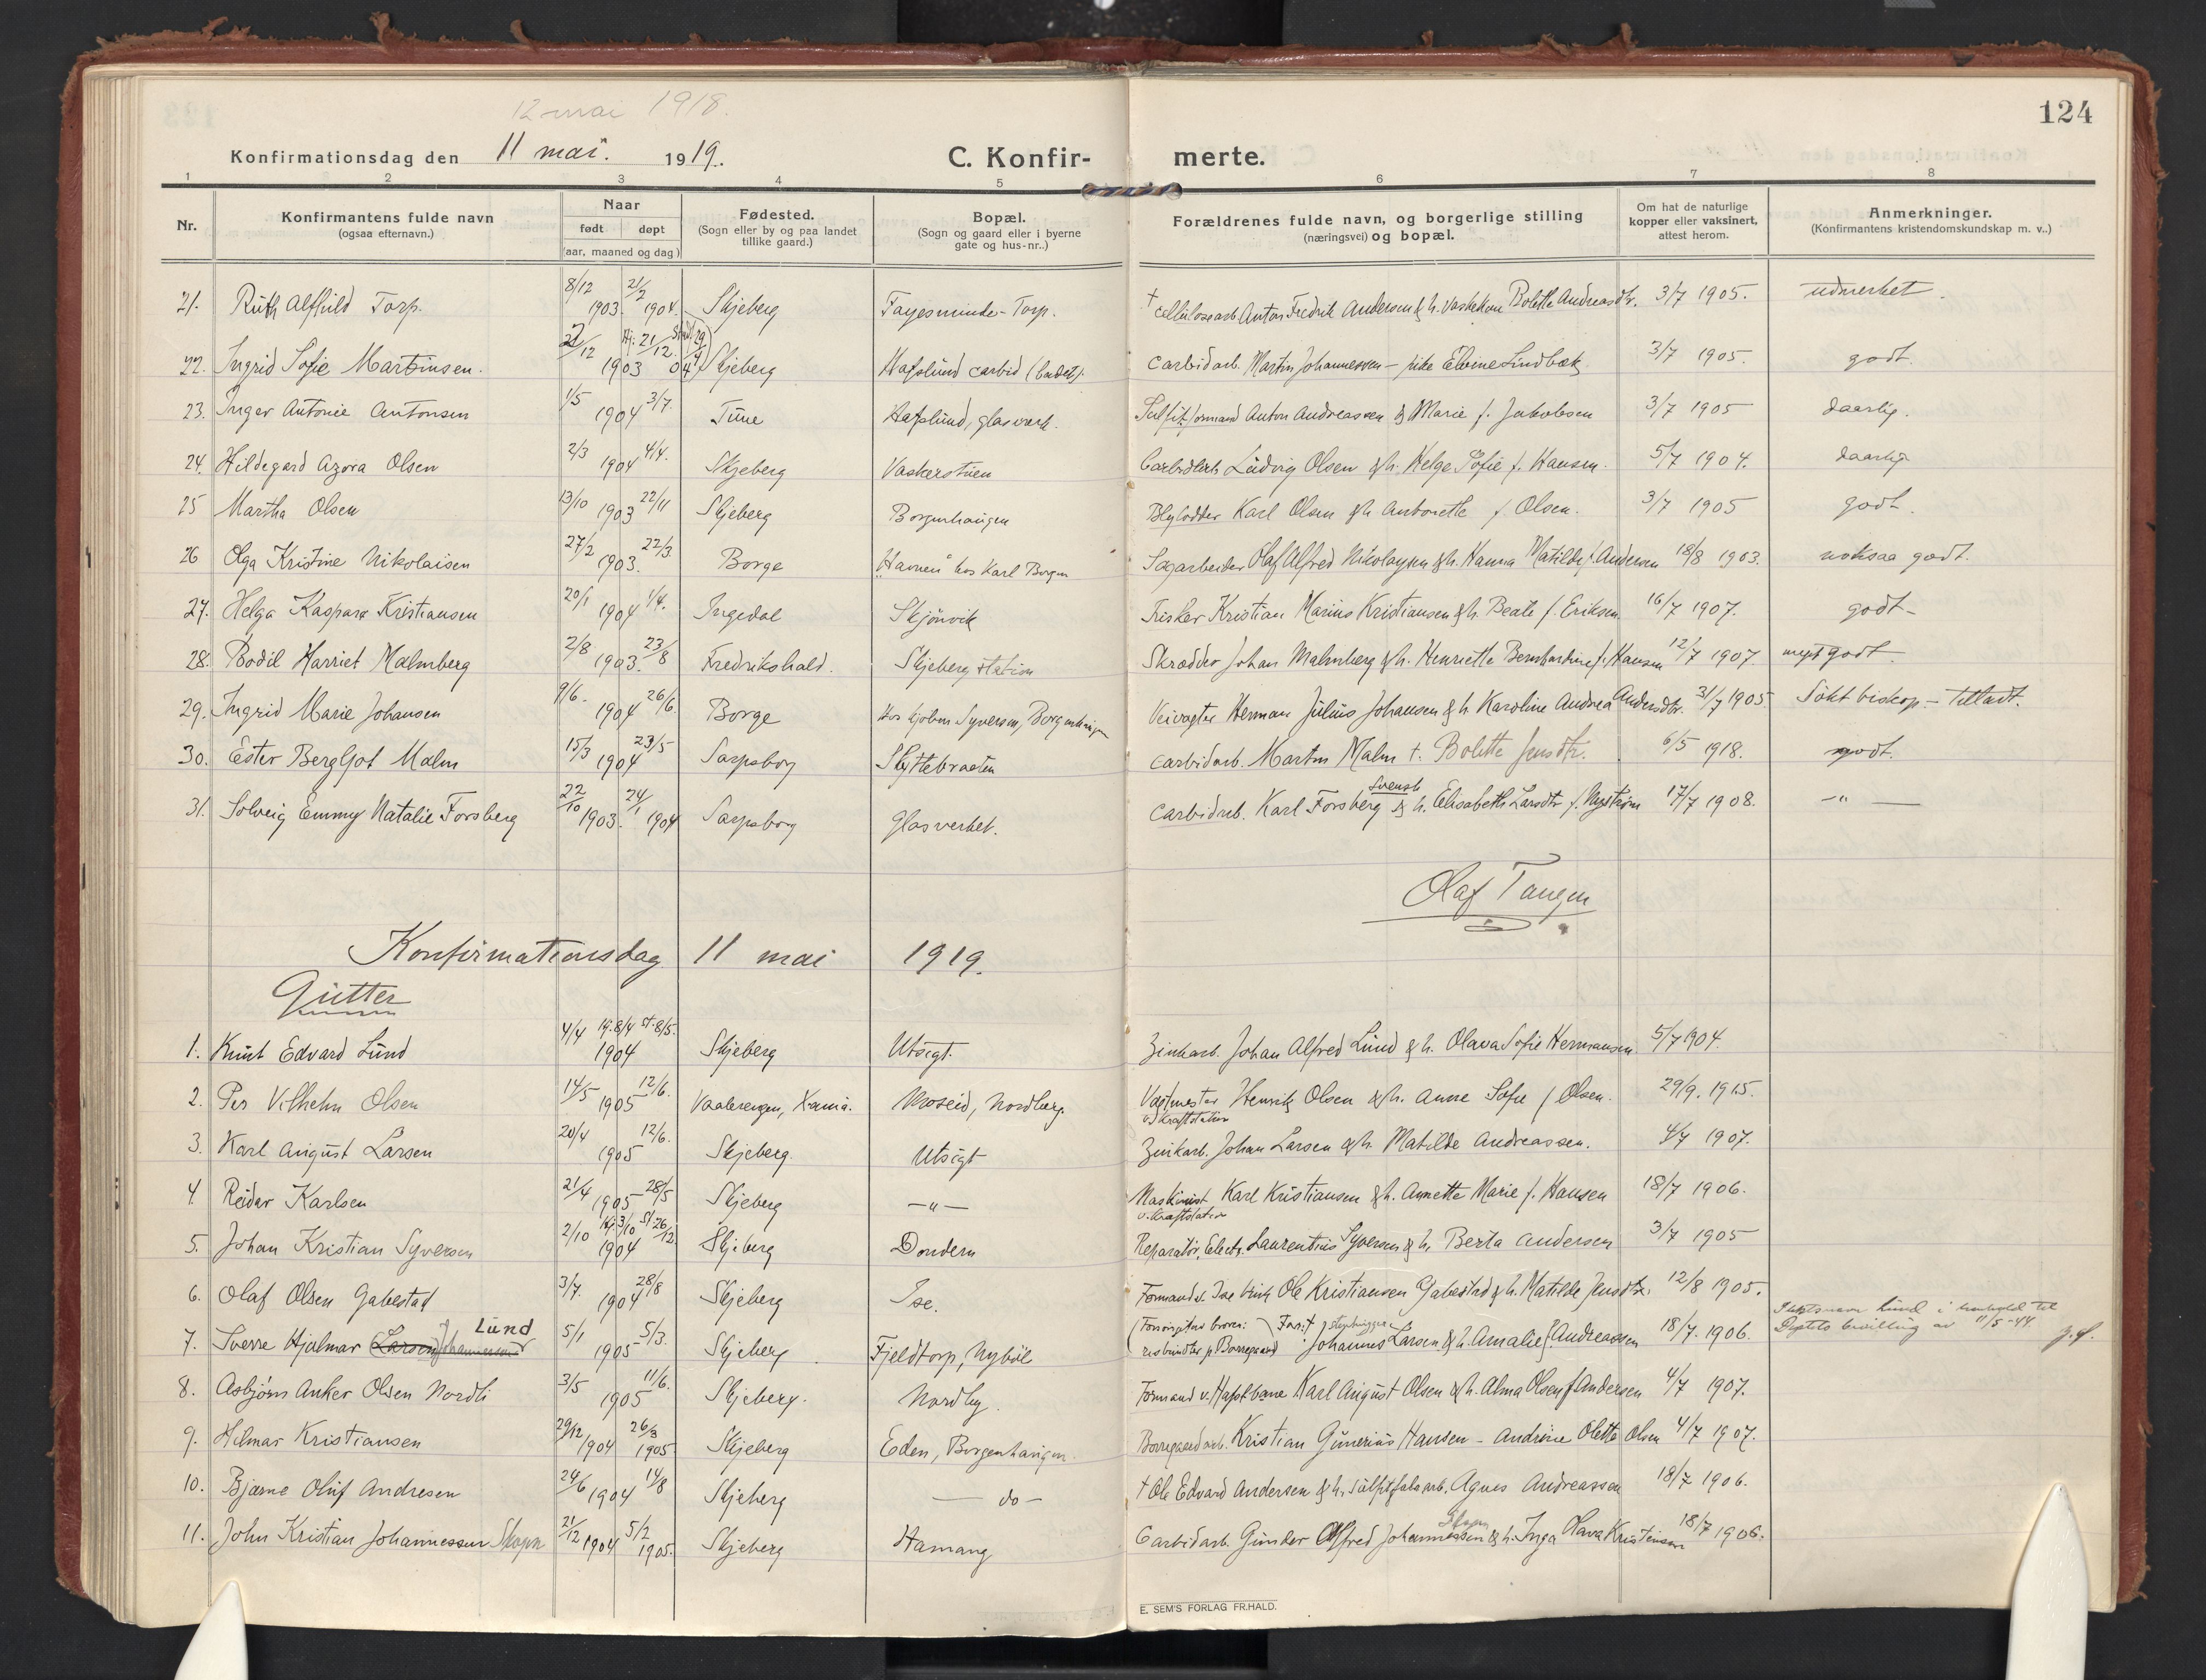 124
12 mai 1918.
Konfirmationsdag den 11 mai. 1919. C. Konfir- merte.
1 2 3 4 5 6 7 8
Nr. Konfirmantens fulde navn (ogsaa efternavn.) Naar født døpt (aar, maaned og dag) Fødested. (Sogn eller by og paa landet tillike gaard.) Bopæl. (Sogn og gaard eller i byerne gate og hus-nr..) Forældrenes fulde navn, og borgerlige stilling (næringsvei) og bopæl. Om hat de naturlige kopper eller vaksinert, attest herom. Anmerkninger. (Konfirmantens kristendomskundskap m. v..)
21. Ruth Alfhild Torp. 8/12 1903. 21/2 1904. Skjeberg Fayesminde-Torp. † Cellulosearb. Anton Fredrik Andersen & h. Bolette Andreasdtr. 3/7 1905. udmerket.
22. Ingrid Sofie Martinsen. 12 1903 Hj: 21/12. 04 Skjeberg Hafslund carbid Carbidarb. Martin Johannessen – pike Elvine Lindbæk 3/7 1905. godt.
23. Inger Antonie Antonsen 1/5 1904 3/7 Tune Hafslund, glasverk. Sulfitformand Anton Andreassen & Marie f. Jakobsen 3/7 1905 daarlig.
24. Hildegard Azora Olsen 2/3 1904 4/4. Skjeberg Vaskerstuen Carbidarb. Ludvig Olsen & h. Helge Sofie f. Hansen. 5/7 1904. daarlig
25 Martha Olsen 13/10 1903 22/11 Skjeberg Borgenhaugen Blylodder Karl Olsen & h. Antonette f. Olsen. 3/7 1905 godt.
26 Olga Kristine Nikolaisen 27/2 1903. 22/3 Borge "Havnen" hos Karl Borgen Sagarbeider Olaf Alfred Nikolaysen & h. Hanna Matilde f. Andersen 18/8 1903. noksaa godt.
27. Helga Kaspara Kristiansen 20/1 1904 1/4. Ingedal Skjønvik Fisker Kristian Marius Kristiansen & h. Beate f. Eriksen 16/7 1907. godt –
28. Bodil Harriet Malmberg 2/8 1903. 23/8 Fredrikshald. Skjeberg station Skrædder Johan Malmberg & h. Henriette Bernhardine f. Hansen 12/7 1907. meget godt.
29. Ingrid Marie Johansen 9/6 – 1904 26/6. Borge Hos Hjalmar Syversen, Borgenhaugen Veivogter Herman Julius Johansen & h. Karoline Andrea Andersdtr. 31/7 1905. Søkt biskop. – Tilladt.
30. Ester Bergljot Malm 15/3 1904 23/5 Sarpsborg Skyttebraaten Carbidarb. Martin Malm †. Bolette Jensdtr. 6/5 1918. godt.
31. Solveig Emmy Natalie Forsberg 22/10 1903. 24/1 1904 Sarpsborg Glasverket. Carbidarb. Karl Forsberg svensk & h. Elisabeth Larsdtr f. Nystrøm 17/7 1908. – " –
Olaf Tangen
Konfirmationsdag 11 mai 1919.
Gutter
1. Knut Edvard Lund 4/4 1904 Hj. 8/4 st. 8/5. Skjeberg Utsigt. Zinkarb. Johan Alfred Lund & h. Olava Sofie Hermansen. 5/7 1904.
2. Per Vilhelm Olsen 14/5 1905 12/6. Vaalerengen, Xania. Moseid, Nordberg. Vagtmester v/ Kraftstation Henrik Olsen & h. Anne Sofie f. Olsen. 29/9. 1915.
3. Karl August Larsen 20/4 1905 12/6. Skjeberg. Utsigt Zinkarb. Johan Larsen & h. Matilde Andreassen. 4/7 1907.
4. Reidar Karlsen 21/4 1905 28/5 Skjeberg – " – Maskinist v. Kraftstation Karl Kristiansen & h. Annette Marie f. Hansen 18/7 1906.
5. Johan Kristian Syversen 2/10 1904 Hj. 3/10 St. 26/12. Skjeberg Dondern Reparatør, Electr. Laurentius Syversen & h. Berta Andersen 3/7 1905
6. Olaf Olsen Gabestad 3/7. 1904 28/8 Skjeberg Ise. Formand v. Ise bruk Ole Kristiansen Gabestad & h. Matilde Jensdtr. 12/8 1905.
7. Sverre Hjalmar Larsen Johannessen Lund 5/1 1905 5/3. Skjeberg. Fjeldtorp, Nybøl Johannes Larsen & h. Amalie f. Andreassen 18/7. 1906. Lund i henhold til bevilling av 11/5-44
8. Asbjørn Anker Olsen Nordli 3/5 1905 11/6. Skjeberg. Nordby. Formand v. Hafsl. bane Karl August Olsen & h. Alma Olsen f Andersen 4/7 1907.
9. Hilmar Kristiansen 29/12 1904 26/3 1905 Skjeberg Eden, Borgenhaugen. Borregaardarb. Kristian Gunerius Hansen – Andrine Olette Olsen 4/7 1907.
10. Bjarne Oluf Andresen 24/6 1904 14/8 Skjeberg – do – † Ole Edvard Andersen & h. Agnes Andreassen 18/7 1906.
11. John Kristian Johannessen Skogen 21/12 1904 5/2 1905. Skjeberg Hamang Carbidarb. Gunder Alfred Johannessen Skogen & h. Inga Olava Kristensen 18/7 1906.
E. SEM'S FORLAG FR.HALD.